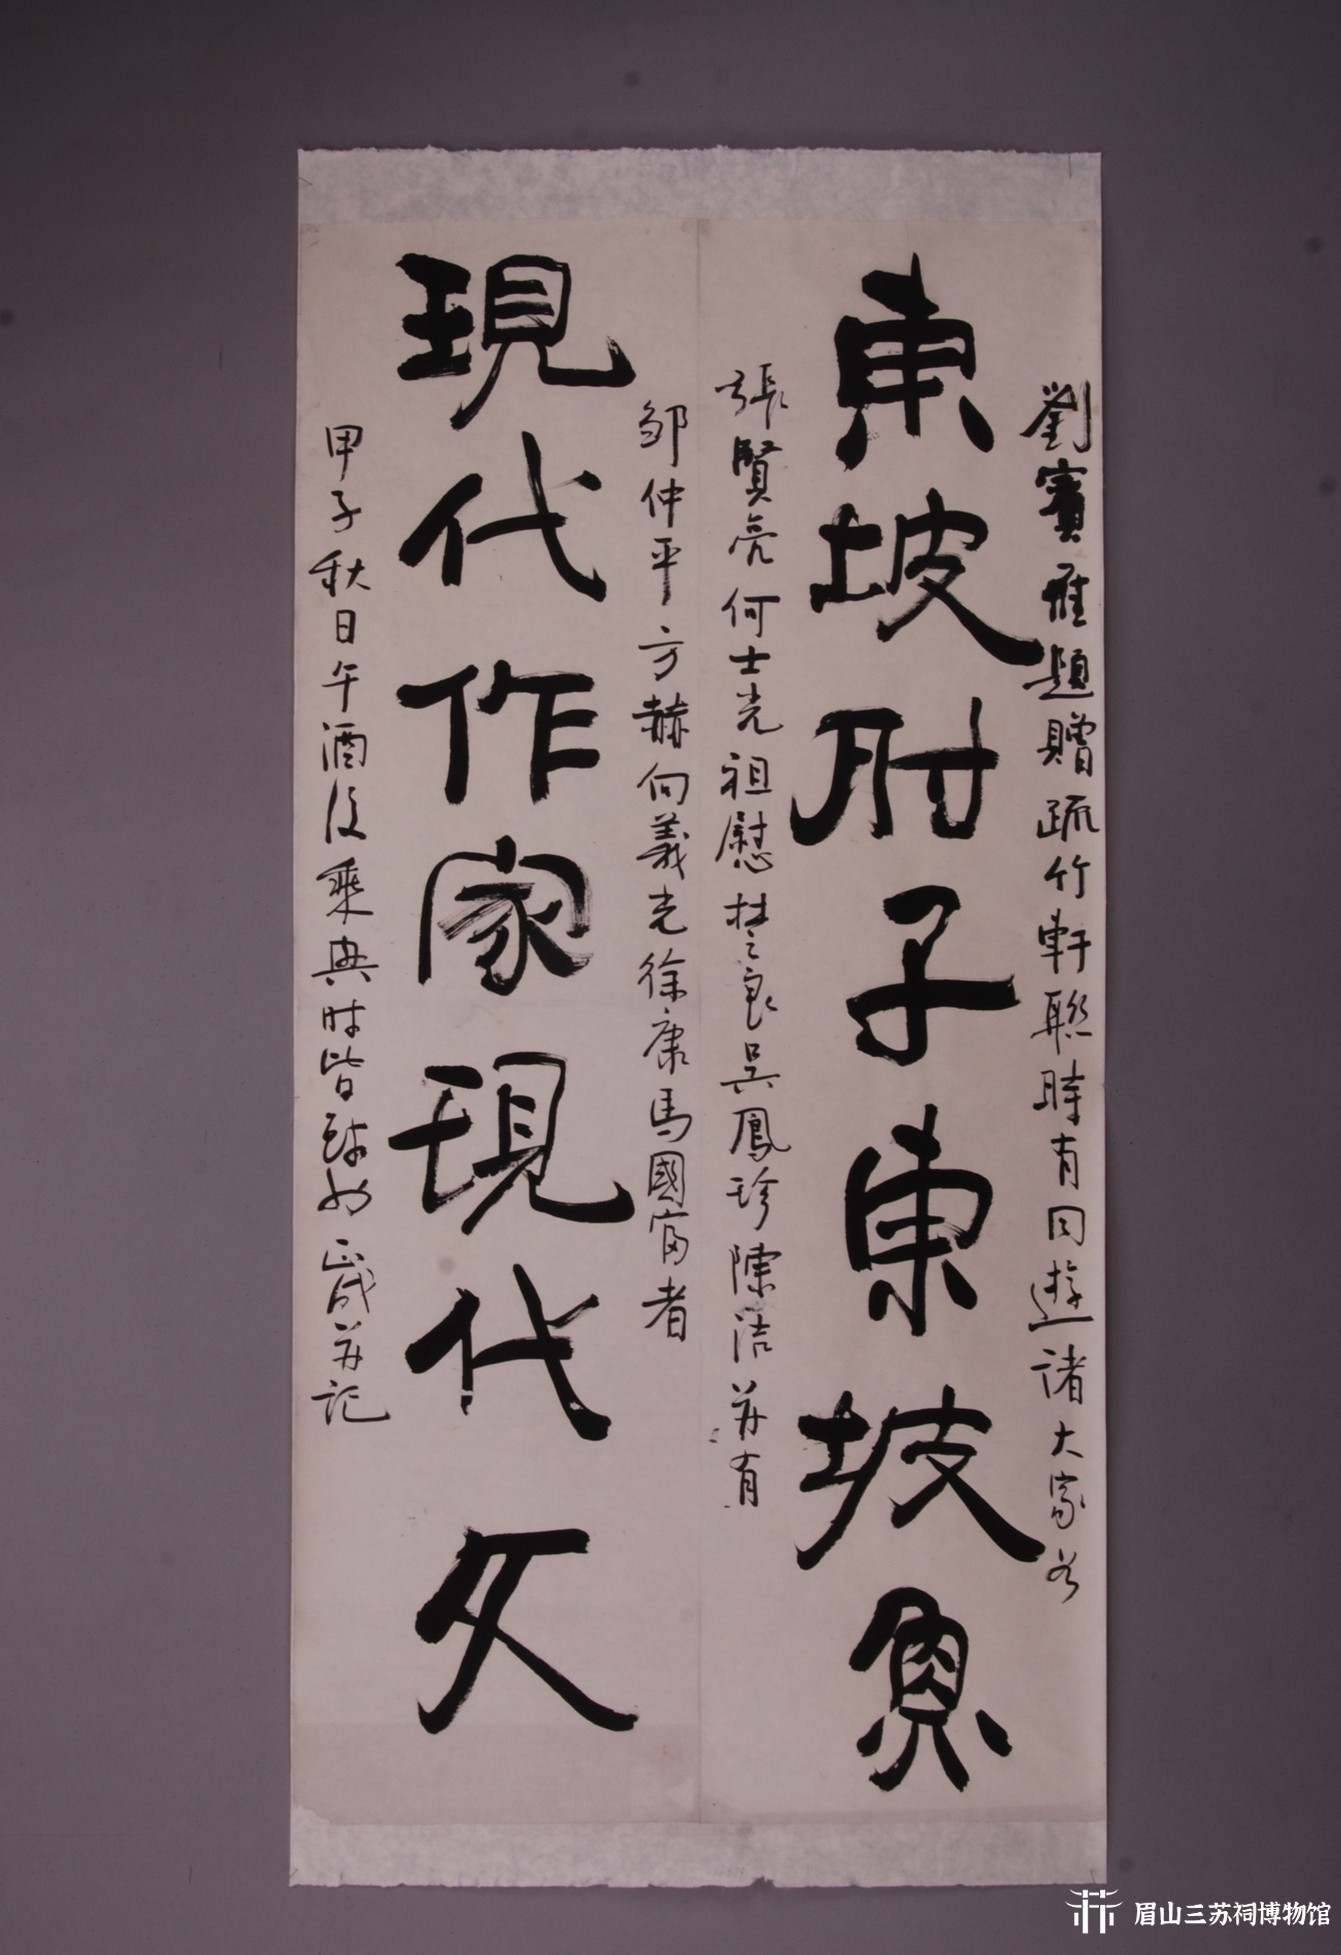 劉賓雁題贈疏竹軒聯時有同遊諸大家如
東坡肘子東坡魚
張賢亮何士光祖慰楚良吳鳳珍陳洁并有
鄒仲平方赫向義光徐康馬國富者
現代作家現代文
甲子秋日午酒後乘興時皆醉也正成并記
眉山三苏祠博物馆